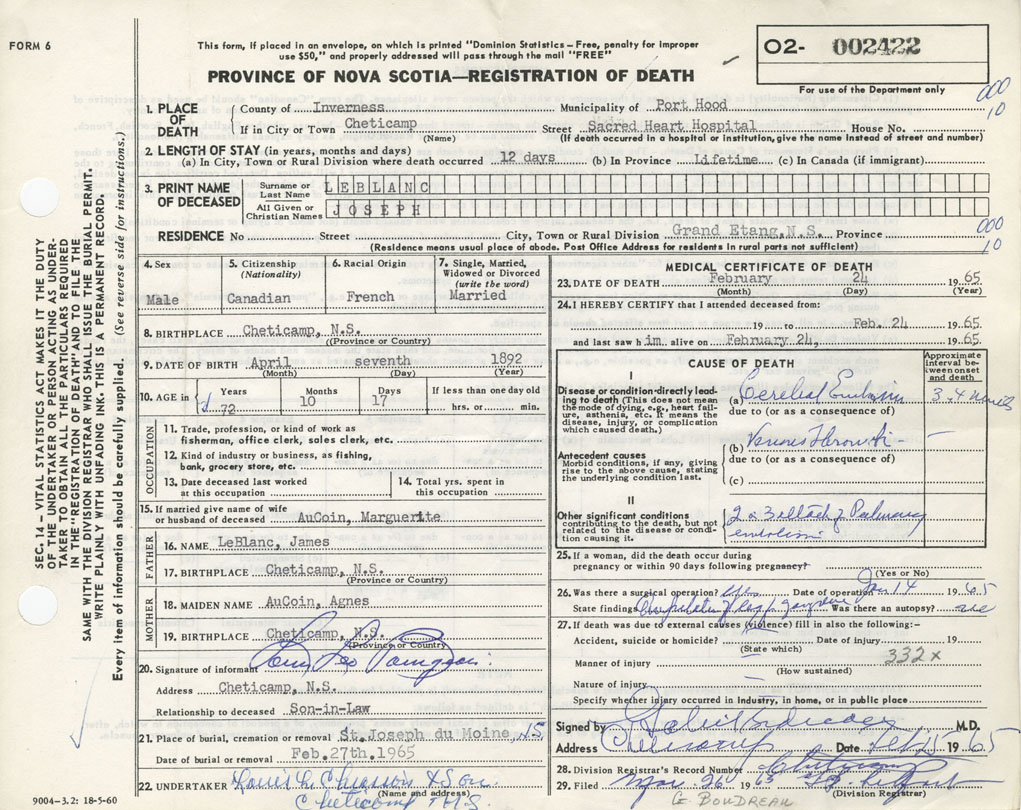 FORM 6
This form, if placed in an envelope, on which is printed "Dominion Statistics – Free, penalty for improper
use $50," and properly addressed will pass through the mail "FREE"
O2- 002422
PROVINCE OF NOVA SCOTIA—REGISTRATION OF DEATH
For use of the Department only
000
10
1. PLACE OF DEATH
County of Inverness Municipality of Port Hood
If in City or Town Cheticamp Street Sacred Heart Hospital House No.
(Name) (If death occurred in a hospital or institution, give the name instead of street and number)
2. LENGTH OF STAY (in years, months and days)
(a) In City, Town or Rural Division where death occurred 12 days (b) In Province Lifetime (c) In Canada (if immigrant)
3. PRINT NAME OF DECEASED
Surname or Last Name LEBLANC
All Given or Christian Names JOSEPH
000
10
RESIDENCE No Street City, Town or Rural Division Grand Etang N.S. Province
(Residence means usual place of abode. Post Office Address for residents in rural parts not sufficient)
SEC. 14 – VITAL STATISTICS ACT MAKES IT THE DUTY
OF THE UNDERTAKER OR PERSON ACTING AS UNDER-
TAKER TO OBTAIN ALL THE PARTICULARS REQUIRED
IN THE "REGISTRATION OF DEATH" AND TO FILE THE
SAME WITH THE DIVISION REGISTRAR WHO SHALL ISSUE THE BURIAL PERMIT.
WRITE PLAINLY WITH UNFADING INK. THIS IS A PERMANENT RECORD.
Every item of information should be carefully supplied. (See reverse side for instructions.)
4. Sex
Male
5. Citizenship
(Nationality)
Canadian
6. Racial Origin
French
7. Single, Married,
Widowed or Divorced
(write the word)
Married
8. BIRTHPLACE Cheticamp, N.S.
(Province or Country)
9. DATE OF BIRTH April seventh 1892
(Month) (Day) (Year)
10. AGE in
Years 72
Months 10
Days 17
If less than one day old
hrs. or min.
OCCUPATION
11. Trade, profession, or kind of work as
fisherman, office clerk, sales clerk, etc.
12. Kind of industry or business, as fishing,
bank, grocery store, etc.
13. Date deceased last worked
at this occupation
14. Total yrs. spent in
this occupation
15. If married give name of wife
or husband of deceased AuCoin, Marguerite
FATHER
16. NAME LeBlanc, James
17. BIRTHPLACE Cheticamp, N.S.
(Province or Country)
MOTHER
18. MAIDEN NAME AuCoin, Agnes
19. BIRTHPLACE Cheticamp, N.S.
(Province or Country)
20. Signature of informant
Address Cheticamp, N.S.
Relationship to deceased Son-in-Law
21. Place of burial, cremation or removal St. Joseph du Moine, NS
Date of burial or removal Feb. 27th. 1965
22. UNDERTAKER & Son
(Name and address)
Cheticamp N.S.
9004–3.2: 18-5-60
MEDICAL CERTIFICATE OF DEATH
23. DATE OF DEATH February 24 1965
(Month) (Day) (Year)
24. I HEREBY CERTIFY that I attended deceased from:
19 to Feb. 24 1965
and last saw him alive on February 24, 1965
CAUSE OF DEATH
Approximate interval between onset and death
I
Disease or condition directly lead-
ing to death (This does not mean
the mode of dying, e.g., heart fail-
ure, asthenia, etc. It means the
disease, injury, or complication
which caused death.)
(a) Cerebral Embolism
due to (or as a consequence of)
Antecedent causes
Morbid conditions, if any, giving
rise to the above cause, stating
the underlying condition last.
(b) Venous Thrombosis
due to (or as a consequence of)
(c)
II
Other significant conditions
contributing to the death, but not
related to the disease or condi-
tion causing it.
2 or 3 attacks of Pulmonary
embolism
25. If a woman, did the death occur during
pregnancy or within 90 days following pregnancy?
(Yes or No)
26. Was there a surgical operation? yes Date of operation Jan 14 1965
State findings Amputation of Leg for Gangrene Was there an autopsy?
27. If death was due to external causes (violence) fill in also the following:–
Accident, suicide or homicide? Date of injury 19
(State which)
332x
Manner of injury
(How sustained)
Nature of injury
Specify whether injury occurred in Industry, in home, or in public place
Signed by M.D.
Address Cheticamp Date 1965
28. Division Registrar's Record Number
29. Filed Mar 26 1965
(Division Registrar)
G BOUDREAU